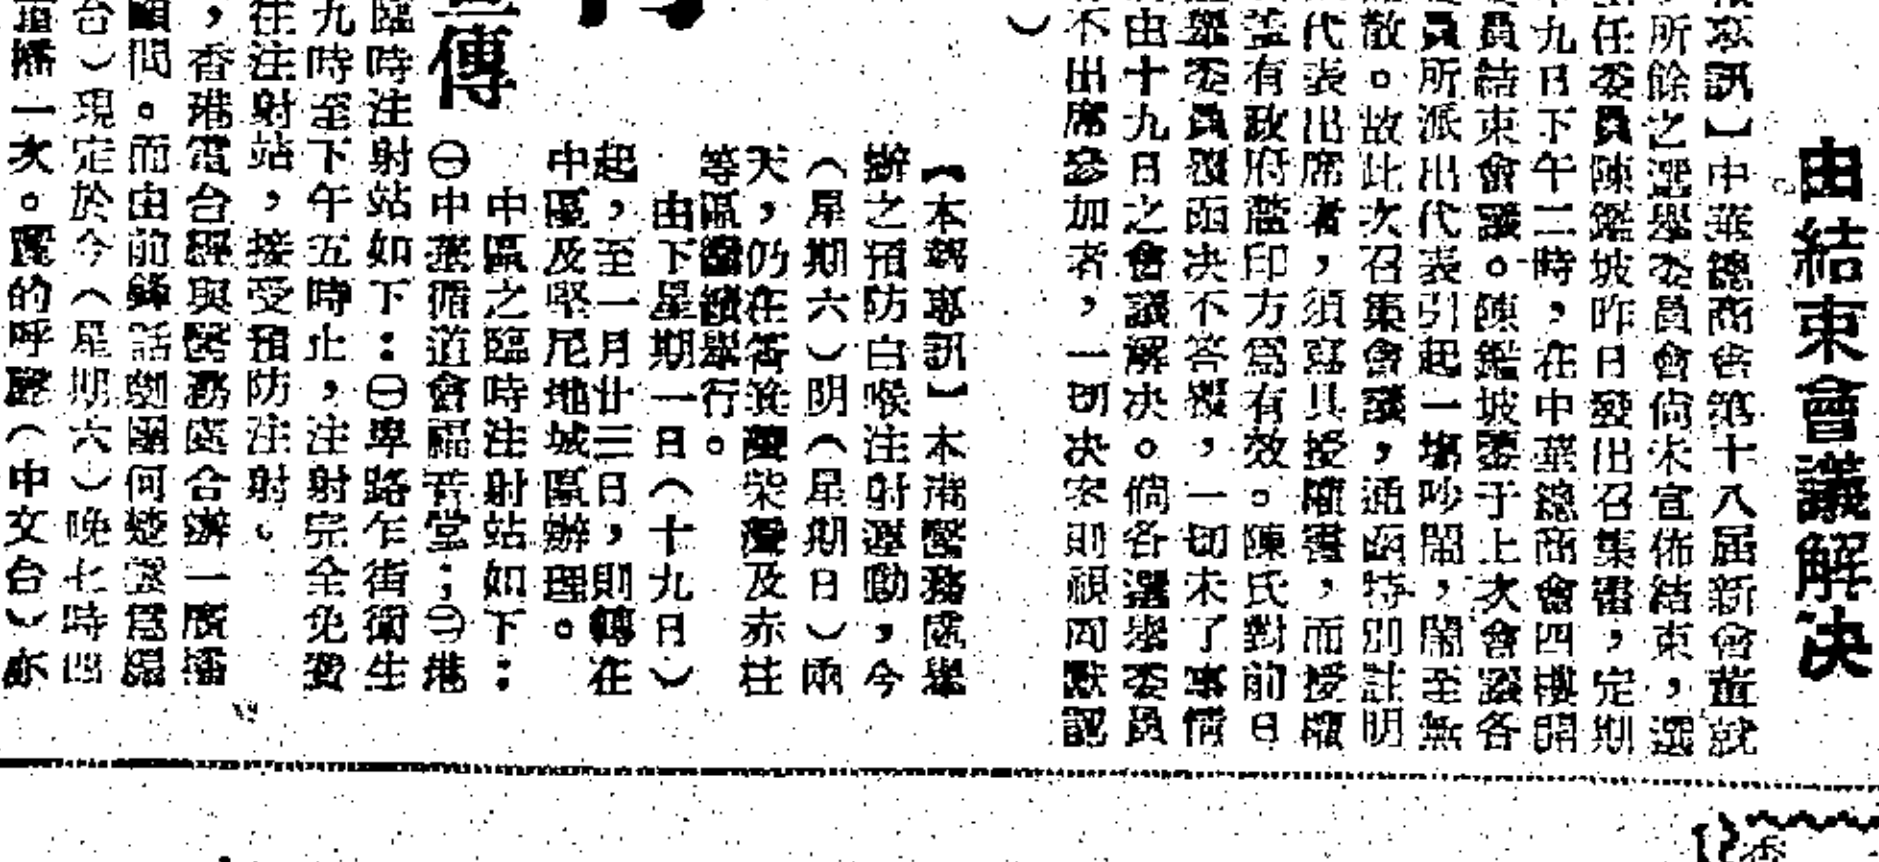 由結束會議解決
專訊】中華總商會第十八届新會董就
所餘之選舉委員會尙未宣佈結束，選
任委員陳鑑坡昨日發出召集書，定期
九日下午二時，在中華總商會四樓開
員結束會議。陳鑑坡鑒于上次會議各
員所派出代表引起一塲吵鬧，鬧至無
散。故此次召集會議，通函特別註明
代表出席者，須寫具授權書，而授權
蓋有政府蓋印方爲有效。陳氏對前日
舉委員覆函决不答覆，一切未了事情
由十九日之會議解决。倘各選舉委員
不出席參加者，一切决案則視同默認
）
【本報專訊】本港醫務處舉
辦之預防白喉注射運動，今
（星期六）明（星期日）兩
天，仍在筲箕灣柴灣及赤柱
等區繼續舉行。
由下星期一日（十九日）
起，至一月廿三日，則轉在
中區及堅尼地城區辦理。
中區之臨時注射站如下：
㊀中華循道會福音堂；㊁港
傳
臨時注射站如下：㊀卑路乍街衛生
九時至下午五時止，注射完全免費
往注射站，接受預防注射。
，香港電台經與醫務處合辦一廣播
顧問。而由前鋒話劇團何楚雲爲編
台）現定於今（星期六）晚七時四
播一次。麗的呼聲（中文台）亦